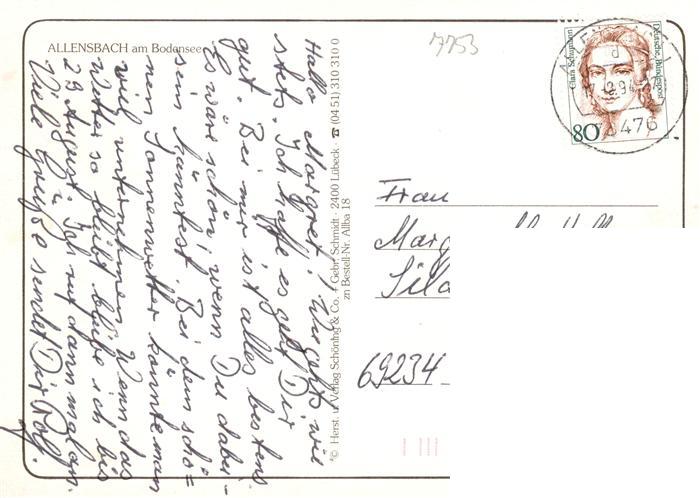 ALLENSBACH am Bodensee
Hallo Margret! Wie geht's wie
stets. Ich hoffe es geht Dir
gut. Bei mir ist alles bestens
Es wäre schön, wenn Du dabei-
sein könntest. Bei dem schö=
nen Sonnenwetter könnte man
viel unternehmen. Wenn das
Wetter so bleibt bleibe ich bis
23 August. Ich ruf dann mal an.
Viele Grüße sendet Dir Rolf.
© Herst. u. Verlag Schöning & Co. + Gebr. Schmidt · 2400 Lübeck · ☎ (0451) 310 310 0
zu Bestell-Nr. Allba 18
7753
Clara Schumann
Deutsche Bundespost
80
476
Frau
69234